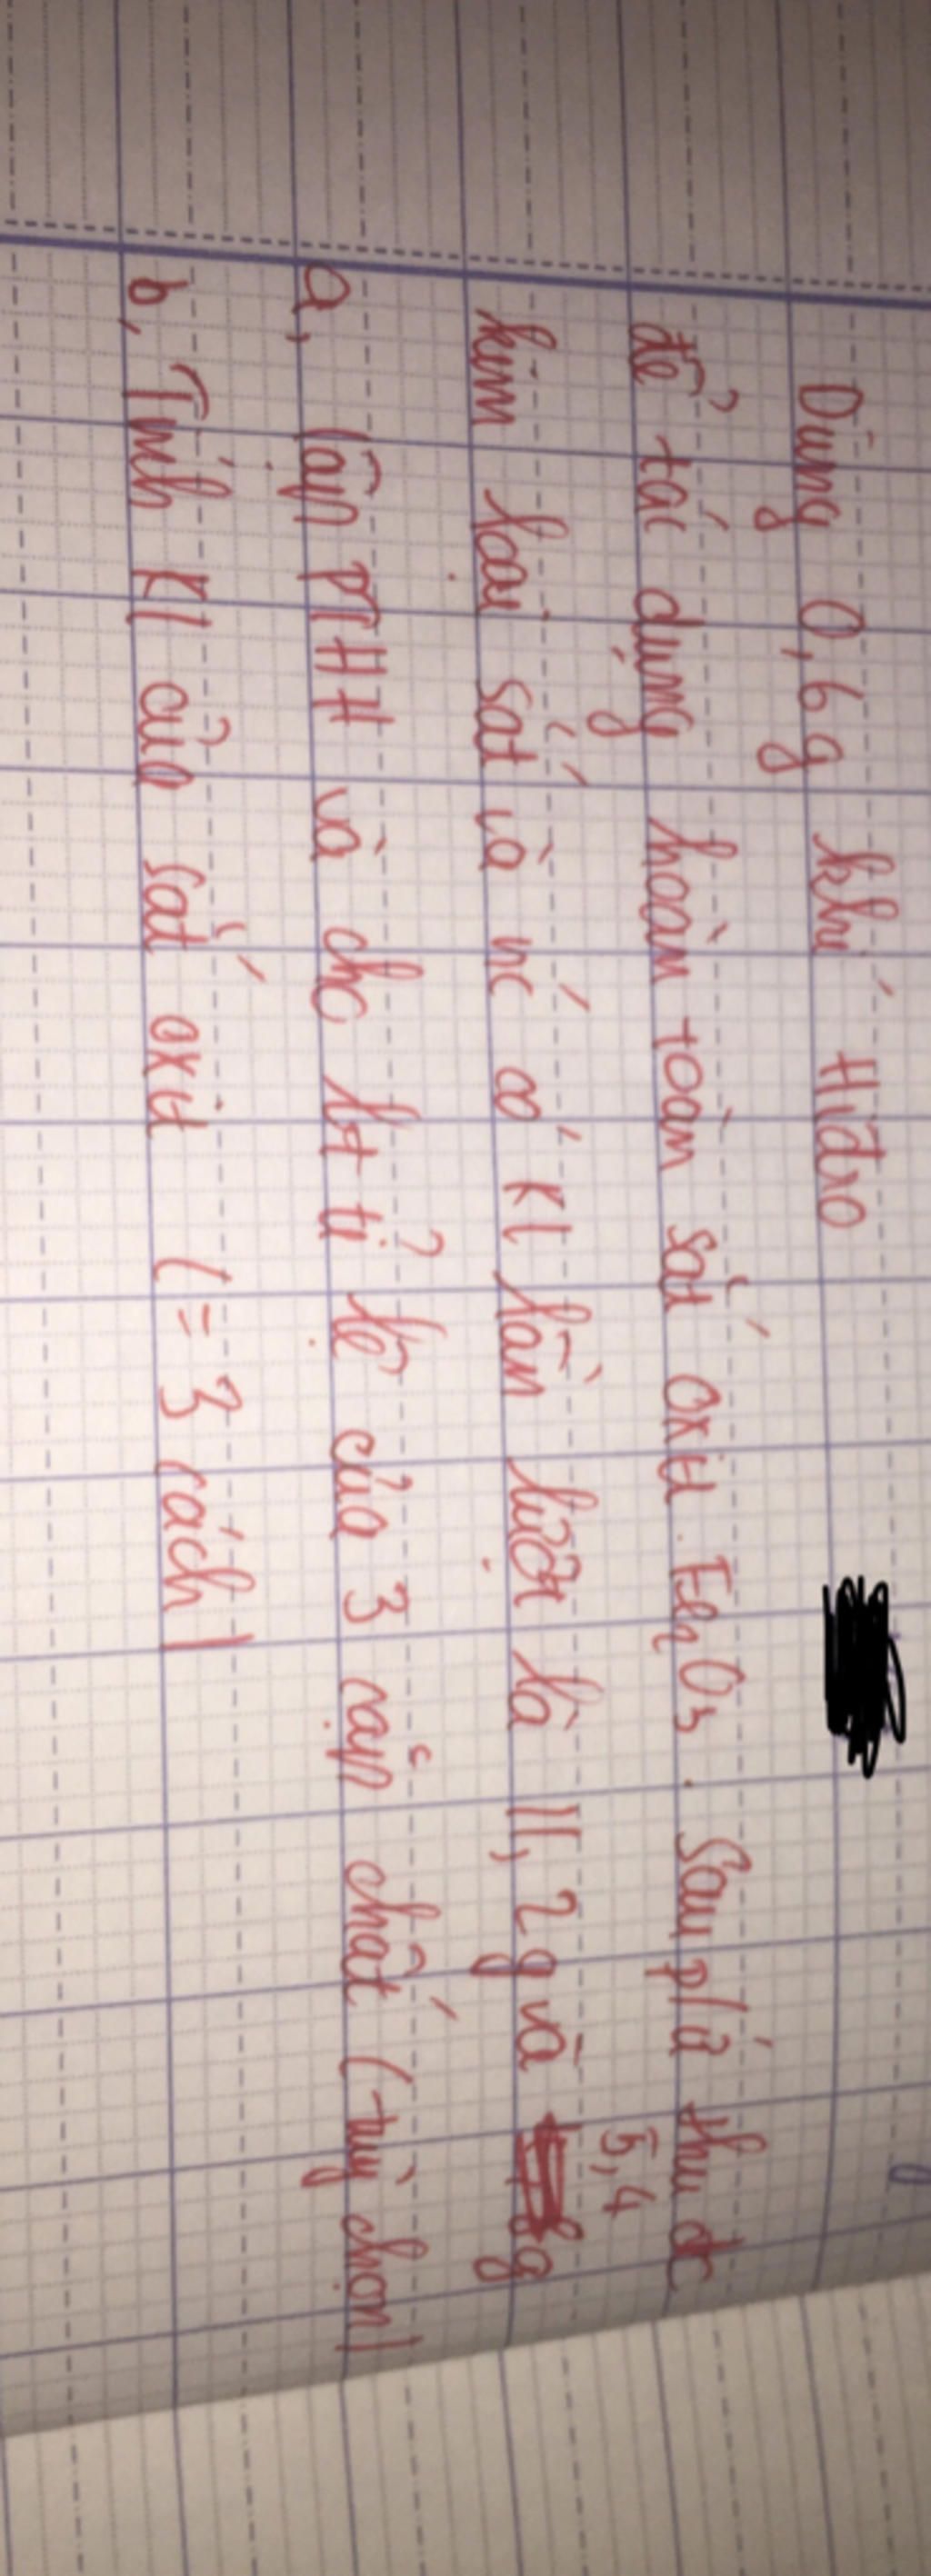 Dùng 0,6g khí Hiđro
để tác dụng hoàn toàn sắt oxit Fe2O3. Sau pứ thu đc
kim loại sắt và nc có Kl lần lượt là 11,2g và 5,4 g
a, lập PTHH và cho bt tỉ lệ của 3 cặp chất (tùy chọn)
b, Tính Kl của sắt oxit (= 3 cách)